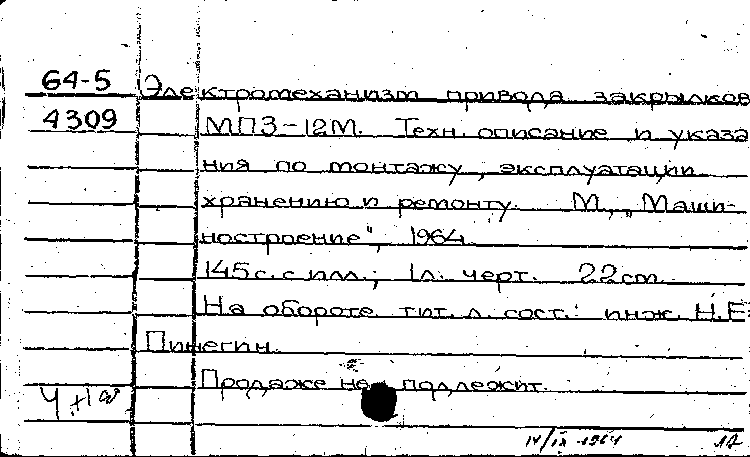 64-5 Электромеханизм привода закрылков
4309 МПЗ-12М. Техн. описание и указа
ния по монтажу, эксплуатации
хранению и ремонту. М., „Маши-
ностроение", 1964
145с. с илл.; 1л. черт. 22cm
На обороте тит. л. сост.: инж. Н.Е.
Пинегин.
Продаже не подлежит.
14/IX 1964